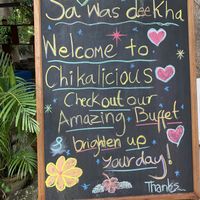 Sa Was dee Kha
Welcome to
Chikalicious
Check out our
Amazing Buffet
& brighten up
your day!
Thanks